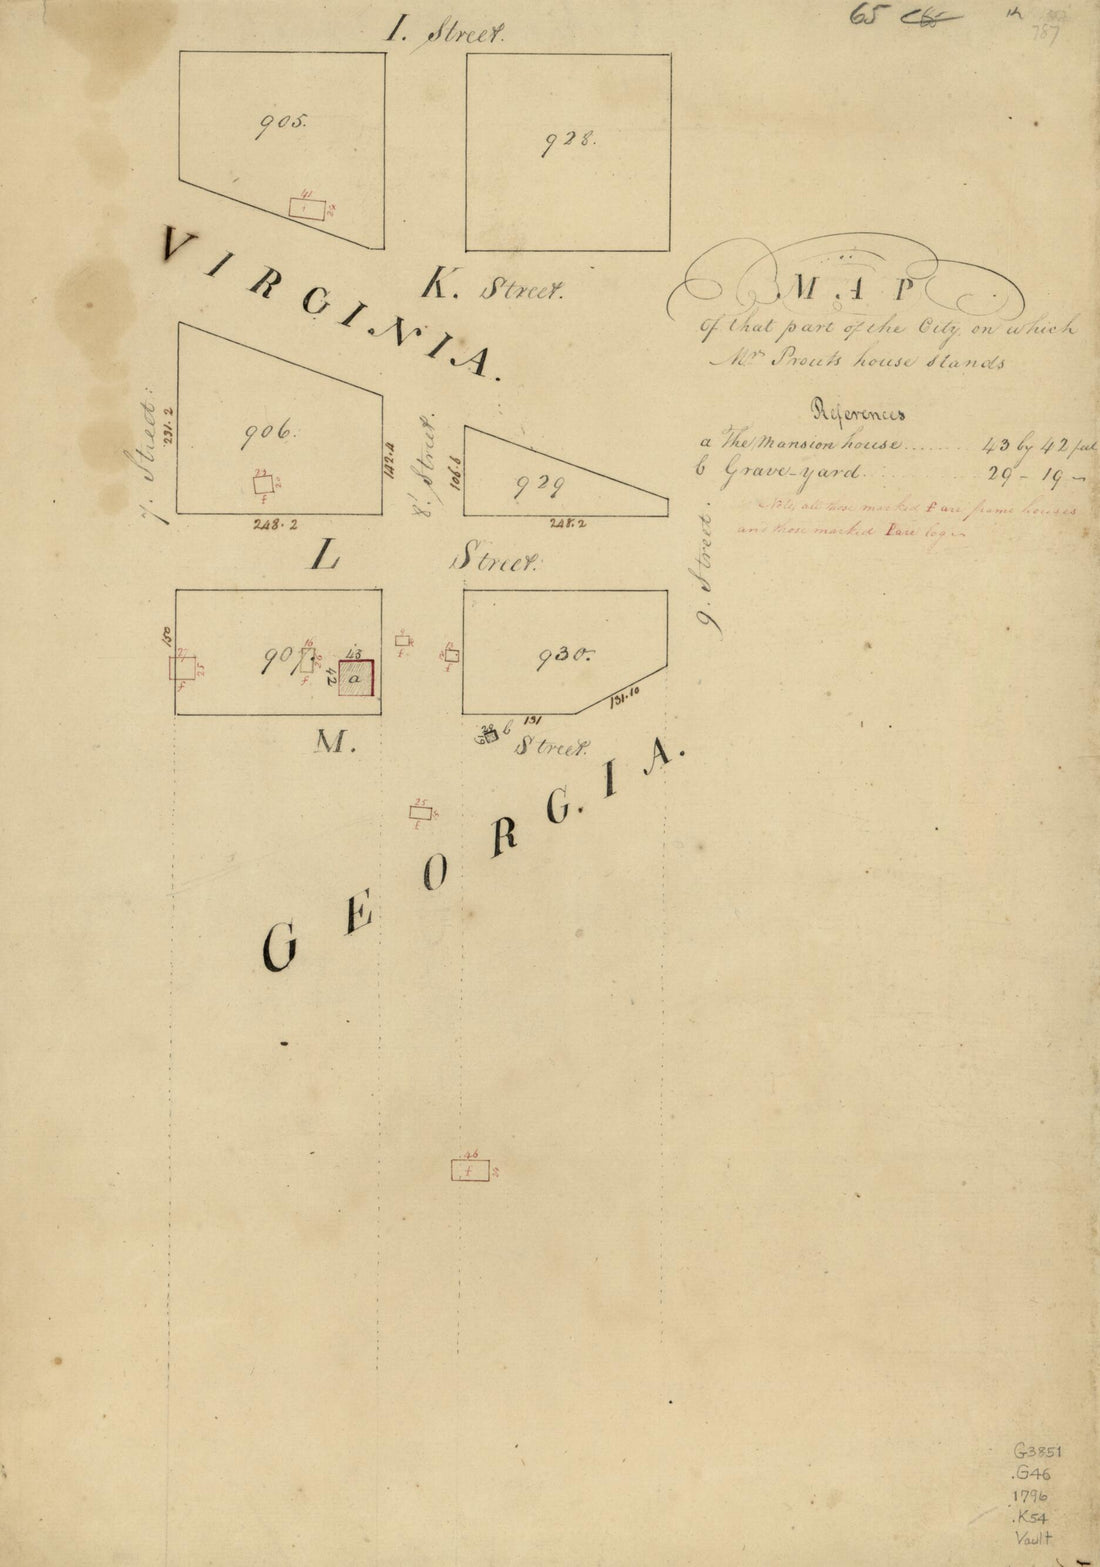 65
787
I. Street.
905.
928.
41
VIRGINIA.
K. Street.
MAP
of that part of the City, on which
Mrs Prouts house stands
References
a The Mansion house ........ 43 by 42 feet
b Grave-yard ........ 29 - 19 -
Note, all those marked f are frame houses
and those marked l are log
7. Street.
231.2
906.
142.4
f
248.2
8. Street.
106.6
929
248.2
9. Street.
L Street.
150
907.
25
f
16
f
43
42
a
f
930.
131
131.10
b
M. Street.
25
f
GEORGIA.
46
f
G3851
.G46
1796
.K54
Vault